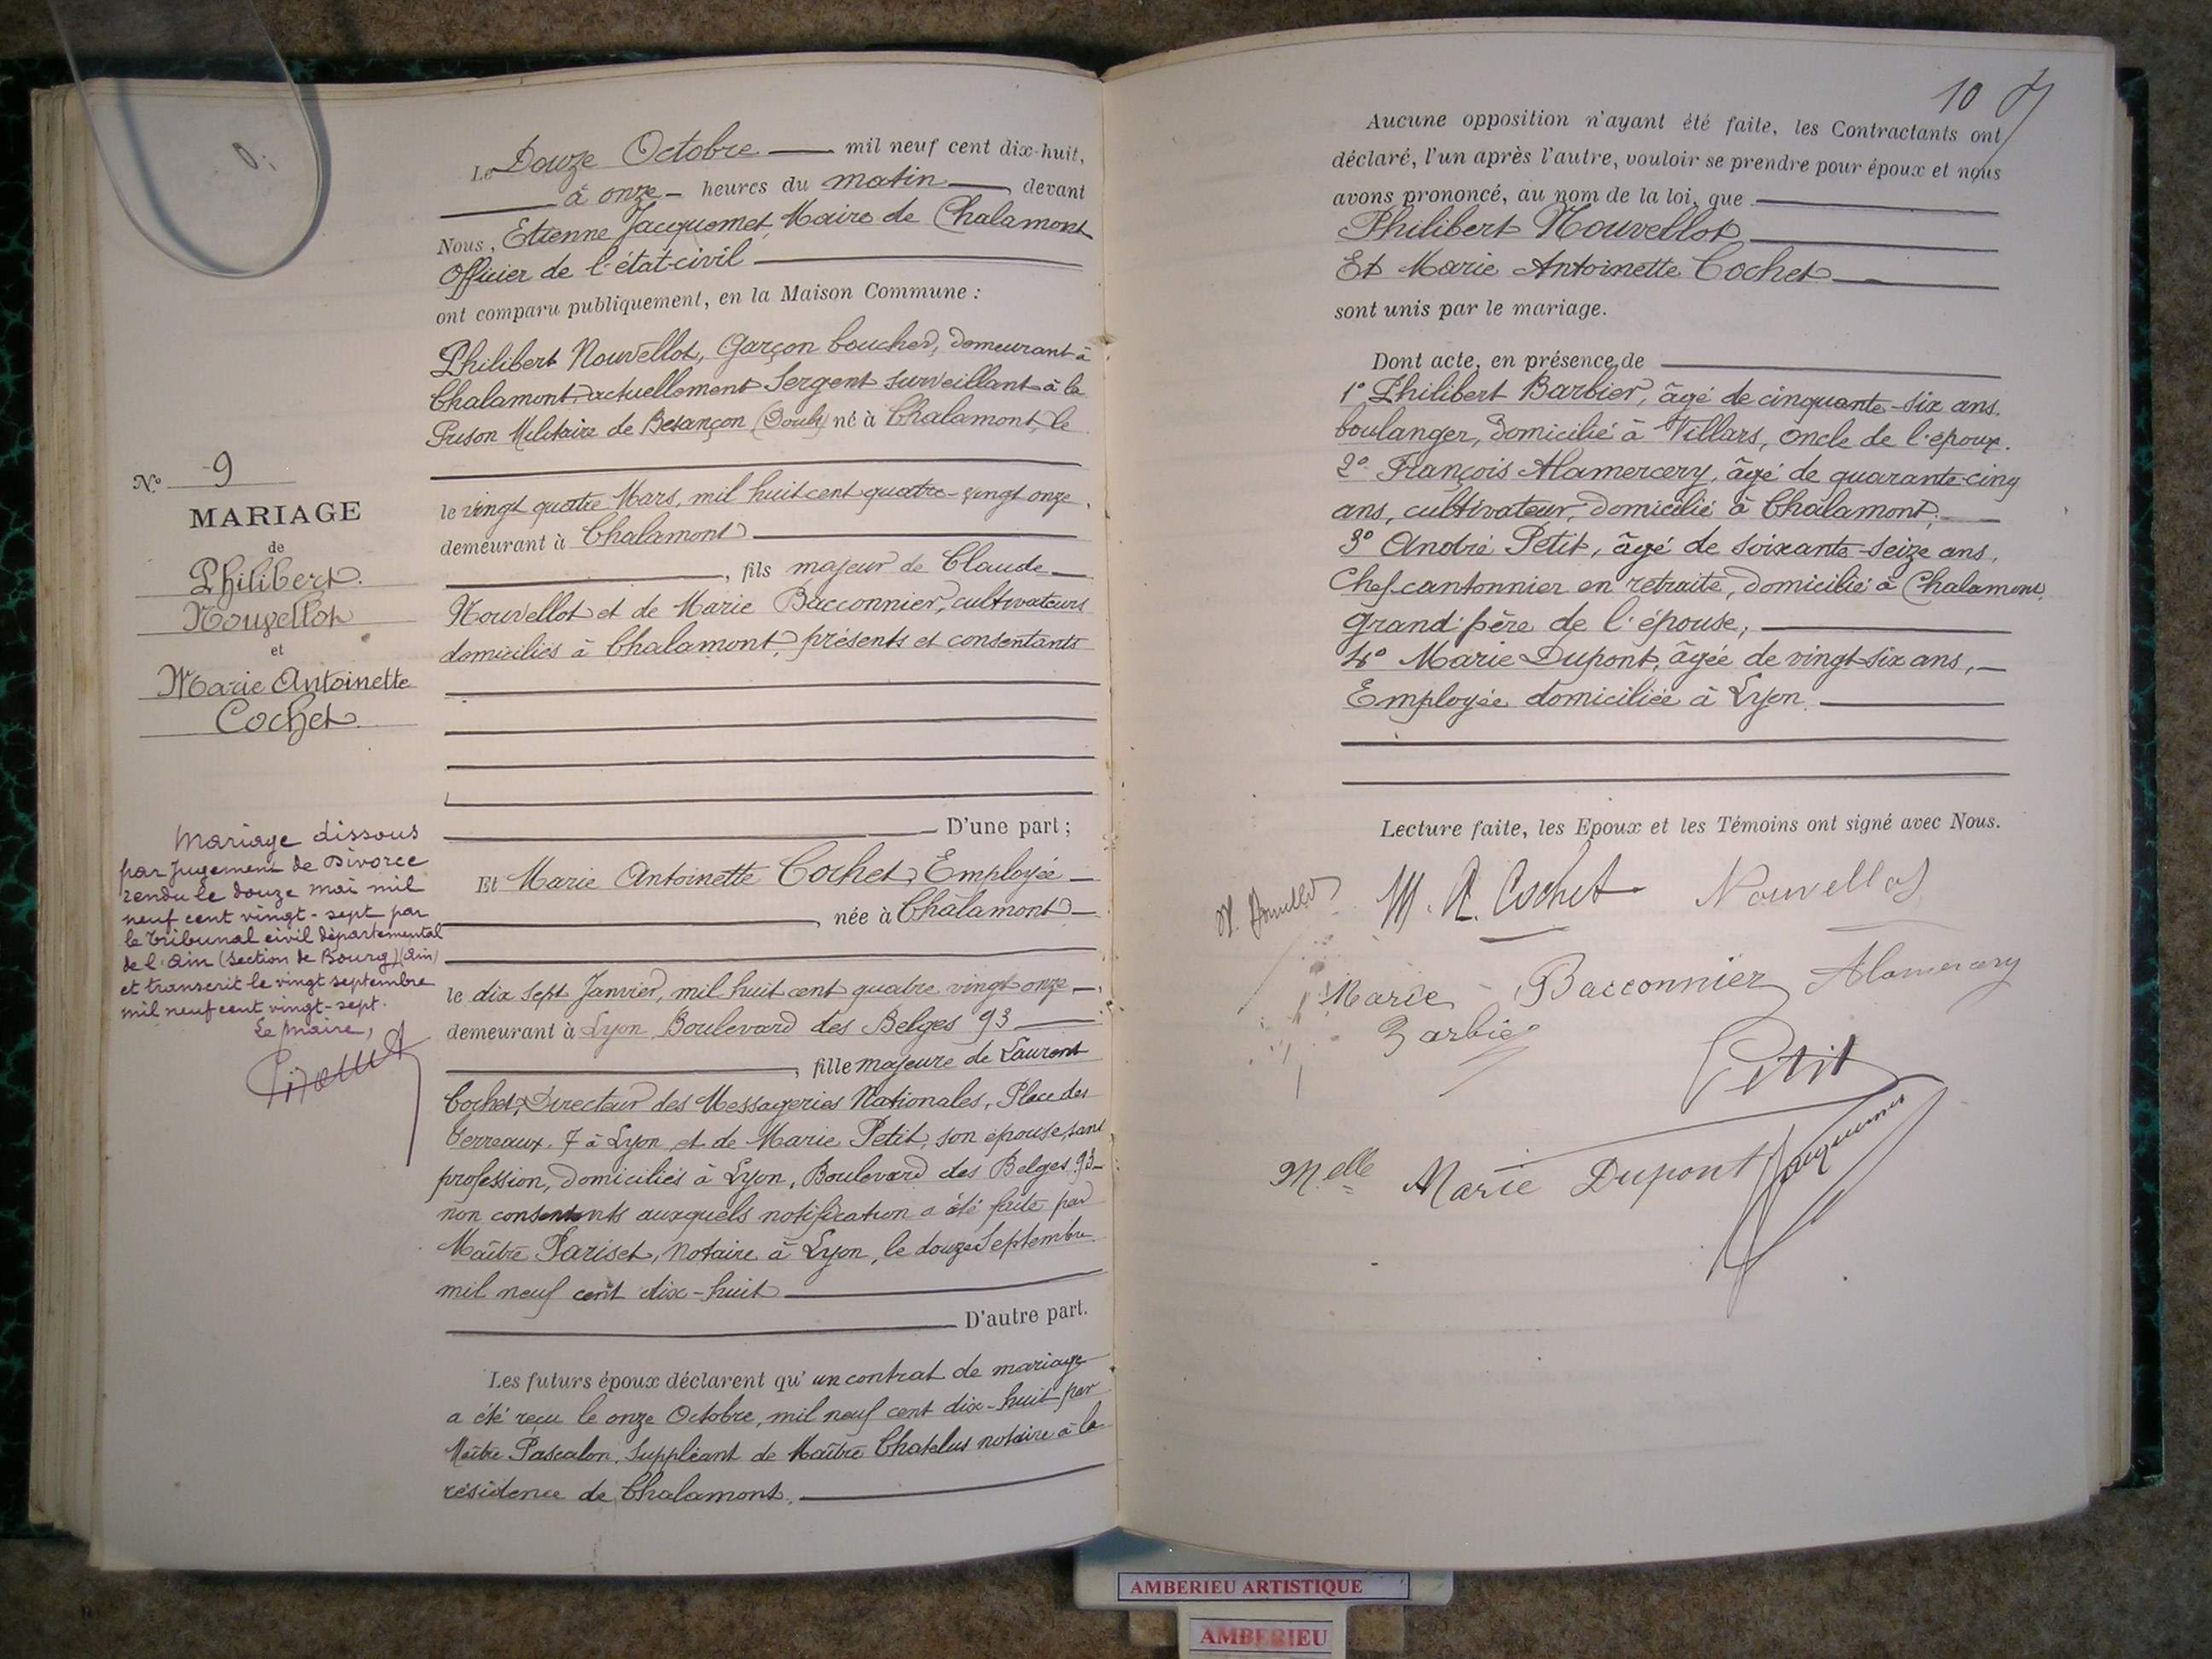 N.° 9
MARIAGE
de
Philibert
Nouvellot
et
Marie Antoinette
Cochet
Mariage dissous
par Jugement de Divorce
rendu le douze mai mil
neuf cent vingt-sept par
le tribunal civil départemental
de l'Ain (section de Bourg) (Ain)
et transcrit le vingt septembre
mil neuf cent vingt-sept.
Le Maire,
Le Douze Octobre mil neuf cent dix-huit,
à onze heures du matin, devant
Nous, Etienne Jacquemet, Maire de Chalamont
Officier de l'état-civil
ont comparu publiquement, en la Maison Commune :
Philibert Nouvellot, Garçon boucher, demeurant à
Chalamont, actuellement Sergent surveillant à la
Prison Militaire de Besançon (Doubs) né à Chalamont, le
le vingt quatre Mars, mil huit cent quatre-vingt onze,
demeurant à Chalamont
, fils majeur de Claude
Nouvellot et de Marie Bacconnier, cultivateurs
domiciliés à Chalamont, présents et consentants
D'une part ;
Et Marie Antoinette Cochet, Employée
, née à Chalamont
le dix sept Janvier, mil huit cent quatre vingt onze,
demeurant à Lyon, Boulevard des Belges 93
, fille majeure de Laurent
Cochet, Directeur des Messageries Nationales, Place des
Terreaux, 7 à Lyon et de Marie Petit, son épouse, sans
profession, domiciliés à Lyon, Boulevard des Belges 93
non consentants auxquels notification a été faite par
Maître Pariset, Notaire à Lyon, le douze Septembre
mil neuf cent dix-huit
D'autre part.
Les futurs époux déclarent qu'un contrat de mariage
a été reçu le onze Octobre, mil neuf cent dix-huit par
Maître Pascalon, Suppléant de Maître Chatelus notaire à la
résidence de Chalamont.
10
Aucune opposition n'ayant été faite, les Contractants ont
déclaré, l'un après l'autre, vouloir se prendre pour époux et nous
avons prononcé, au nom de la loi, que
Philibert Nouvellot
Et Marie Antoinette Cochet
sont unis par le mariage.
Dont acte, en présence de
1° Philibert Barbier, âgé de cinquante-six ans.
boulanger, domicilié à Villars, oncle de l'époux.
2° François Alamercery, âgé de quarante-cinq
ans, cultivateur, domicilié à Chalamont;
3° André Petit, âgé de soixante-seize ans,
Chef-cantonnier en retraite, domicilié à Chalamont,
Grand-père de l'épouse;
4° Marie Dupont, âgée de vingt-six ans,
Employée domiciliée à Lyon.
Lecture faite, les Epoux et les Témoins ont signé avec Nous.
M. A. Cochet Nouvellot
Marie Bacconnier Alamercery
Barbier
Petit
Melle Marie Dupont Jacquemet
AMBERIEU ARTISTIQUE
AMBERIEU